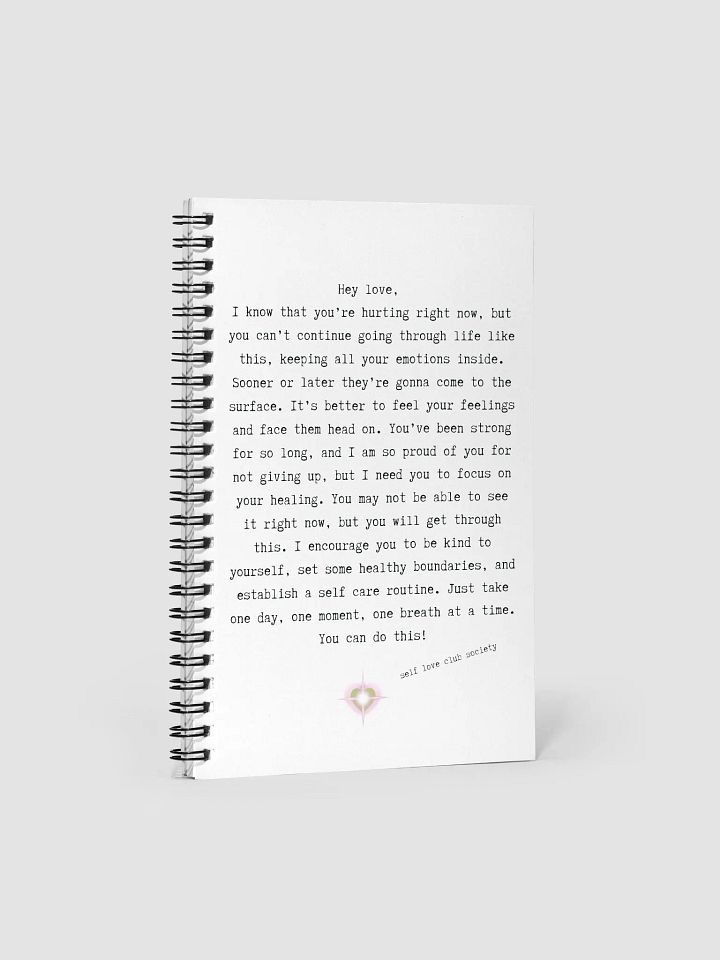 Hey love,
I know that you're hurting right now, but
you can't continue going through life like
this, keeping all your emotions inside.
Sooner or later they're gonna come to the
surface. It's better to feel your feelings
and face them head on. You've been strong
for so long, and I am so proud of you for
not giving up, but I need you to focus on
your healing. You may not be able to see
it right now, but you will get through
this. I encourage you to be kind to
yourself, set some healthy boundaries, and
establish a self care routine. Just take
one day, one moment, one breath at a time.
You can do this!
self love club society